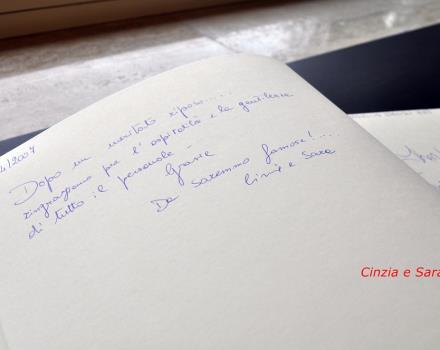 4/2007
Dopo un meritato riposo.....
ringraziamo per l'ospitalità e la gentilezza
di tutto il personale -
Grazie
Da saremmo famose!....
Cinzi e Sara
Cinzia e Sara